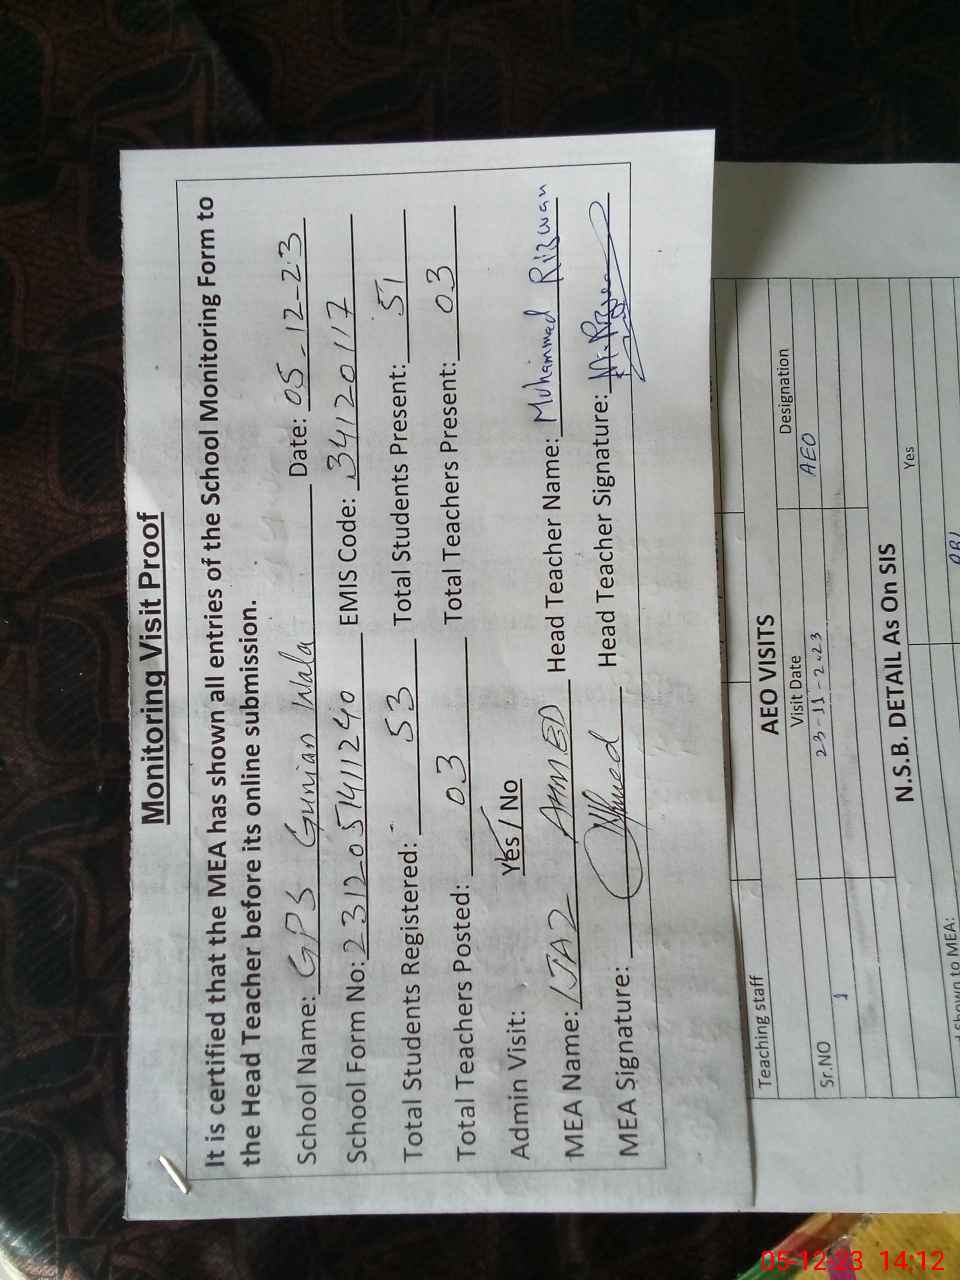 Monitoring Visit Proof
It is certified that the MEA has shown all entries of the School Monitoring Form to
the Head Teacher before its online submission.
School Name: GPS Gunian Wala Date: 05-12-23
School Form No: 231205141240 EMIS Code: 34120117
Total Students Registered: 53 Total Students Present: 51
Total Teachers Posted: 03 Total Teachers Present: 03
Admin Visit: Yes / No
MEA Name: IJAZ AHMED Head Teacher Name: Muhammad Rizwan
MEA Signature: Ahmed Head Teacher Signature:
Teaching staff
AEO VISITS
Sr.NO Visit Date Designation
1 23-11-2023 AEO
N.S.B. DETAIL As On SIS
Yes
shown to MEA:
05-12-23 14:12